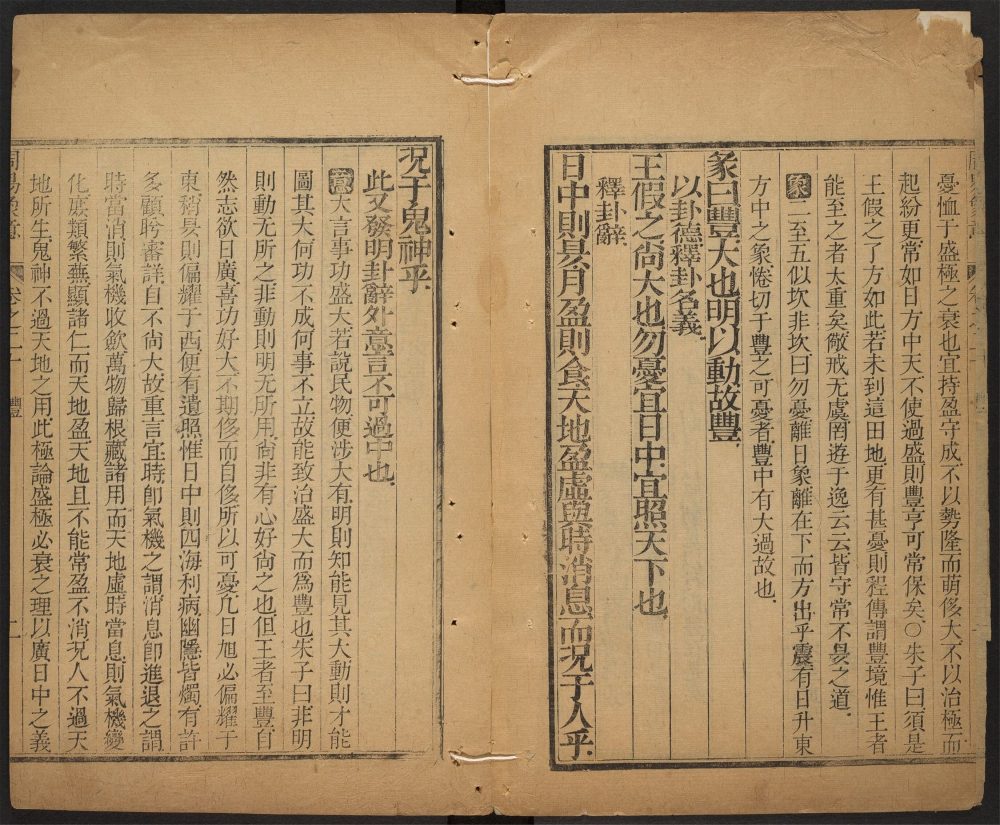 憂恤于盛極之衰也宜持盈守成不以勢隆而萌侈大不以治極而
起紛更常如日方中天不使過盛則豐亨可常保矣○朱子曰須是
王假之了方如此若未到這田地更有甚憂則程傳謂豐境惟王者
能至之者太重矣儆戒无虞罔遊于逸云云皆守常不昃之道
象二至五似坎非坎曰勿憂離日象離在下而方出乎震有日升東
方中之象惓切于豐之可憂者豐中有大過故也
彖曰豐大也明以動故豐
以卦德釋卦名義
王假之尙大也勿憂宜日中宜照天下也
釋卦辭
日中則昃月盈則食天地盈虛與時消息而況于人乎
況于鬼神乎
此又發明卦辭外意言不可過中也
大言事功盛大若說民物便涉大有明則知能見其大動則才能
圖其大何功不成何事不立故能致治盛大而爲豐也朱子曰非明
則動无所之非動則明无所用尙非有心好尙之也但王者至豐自
然志欲日廣喜功好大不期侈而自侈所以可憂凢日旭必偏耀于
東稍昃則偏耀于西便有遺照惟日中則四海利病幽隱皆燭有許
多顧盻審詳自不尙大故重言宜時卽氣機之謂消息卽進退之謂
時當消則氣機收歛萬物歸根藏諸用而天地虛時當息則氣機變
化庶類繁蕪顯諸仁而天地盈天地且不能常盈不消況人不過天
地所生鬼神不過天地之用此極論盛極必衰之理以廣日中之義
卷之二十 豐 二